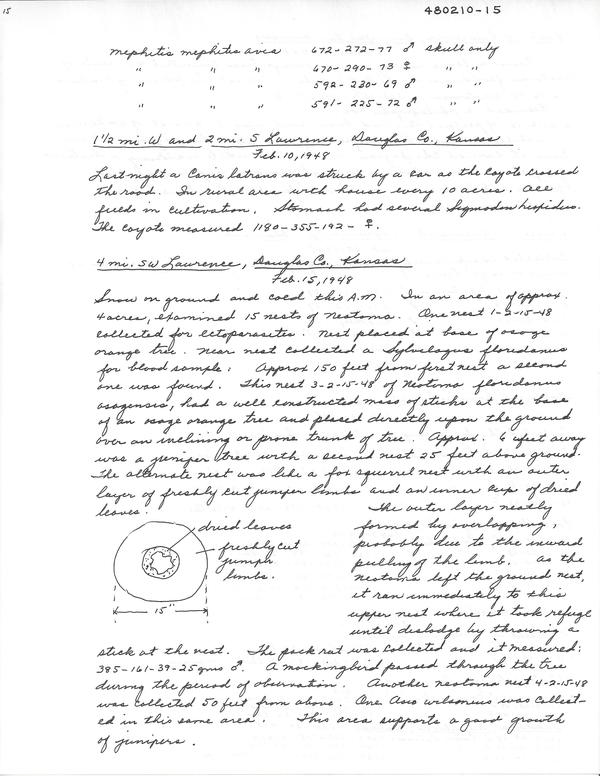 15
480210-15
mephitis mephitis avia 672-272-77 ♂ skull only
" " " 670-290-73 ♀ " "
" " " 592-230-69 ♂ " "
" " " 591-225-72 ♂ " "
1 1/2 mi. W and 2 mi. S Lawrence, Douglas Co., Kansas
Feb. 10, 1948
Last night a Canis latrans was struck by a car as the coyote crossed
the road. In rural area with house every 10 acres. All
fields in cultivation. Stomach had several Sigmodon hispidus.
The coyote measured 1180-355-192- ♀.
4 mi. SW Lawrence, Douglas Co., Kansas
Feb. 15, 1948
Snow on ground and cold this A.M. In an area of approx.
4 acres, examined 15 nests of Neotoma. One nest 1-2-15-48
collected for ectoparasites. Nest placed at base of osage
orange tree. Near nest collected a Sylvilagus floridanus
for blood sample. Approx 150 feet from first nest a second
one was found. This nest 3-2-15-48 of Neotoma floridanus
osagensis, had a well constructed mass of sticks at the base
of an osage orange tree and placed directly upon the ground
over an inclining or prone trunk of tree. Approx. 6 feet away
was a juniper tree with a second nest 25 feet above ground.
The alternate nest was like a fox squirrel nest with an outer
layer of freshly cut juniper limbs and an inner cup of dried
leaves.
dried leaves
freshly cut
juniper
limbs.
15"
The outer layer neatly
formed by overlapping,
probably due to the inward
pulling of the limb. As the
neotoma left the ground nest,
it ran immediately to this
upper nest where it took refuge
until dislodge by throwing a
stick at the nest. The pack rat was collected and it measured:
385-161-39-25 gms ♂. A mockingbird passed through the tree
during the period of observation. Another neotoma nest 4-2-15-48
was collected 50 feet from above. One Asio wilsonius was collect-
ed in this same area. This area supports a good growth
of junipers.